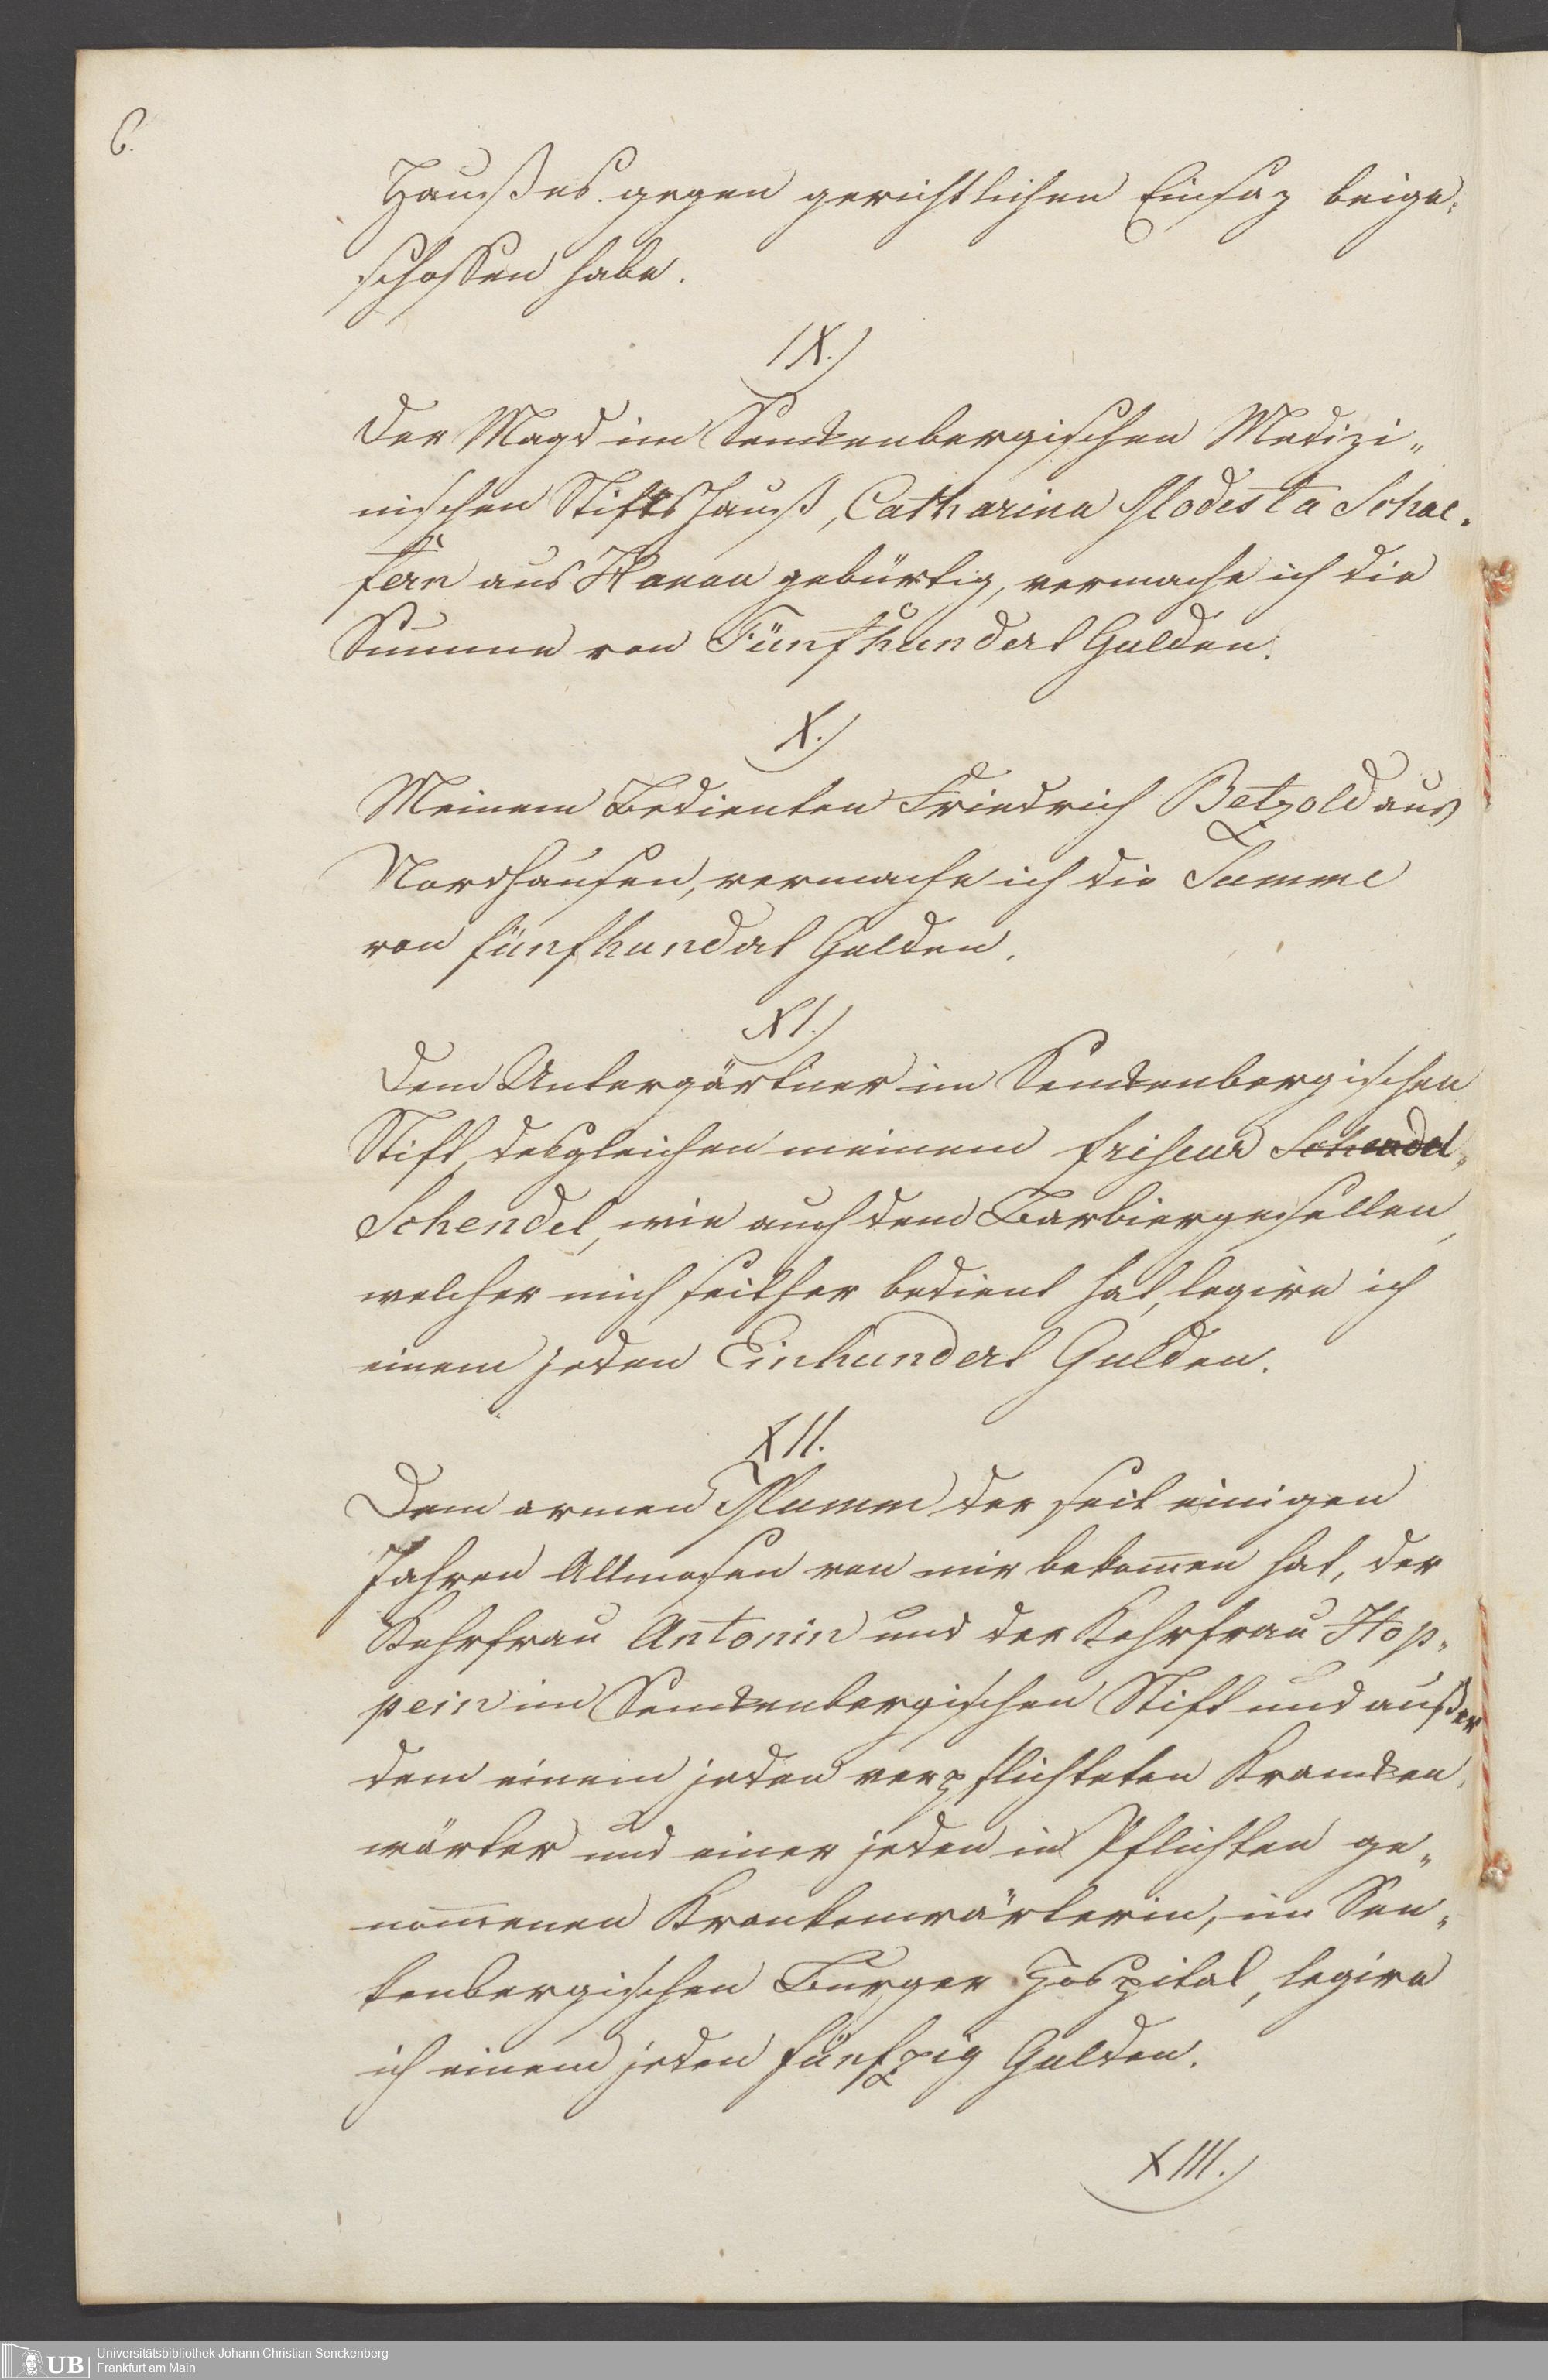 6.
Haußes gegen gerichtlichen Einsaz beige„
schossen habe.
IX.)
Der Magd im Senckenbergischen Medizi„
nischen Stiftshauß, Catharina Modesta Schae„
ferin aus Hanau gebürtig, vermache ich die
Summe von Fünfhundert Gulden.
X.)
Meinem Bedienten Friedrich Betzold aus
Nordhausen, vermache ich die Summe
von fünfhundert Gulden.
XI.)
Dem Untergärtner im Senckenbergischen
Stift, desgleichen meinem friseur Schendel„
Schendel, wie auch dem Barbiergesellen,
welcher mich seither bedient hat, legire ich
einem jeden Einhundert Gulden.
XII.
Dem armen Mumm der seit einigen
Jahren Allmosen von mir bekom̅en hat, der
Kehrfrau Antonin und der Kehrfrau Hop„
pein im Senckenbergischen Stift und außer
dem einem jeden verpflichteten Krancken„
wärter und einer jeden in Pflichten ge„
nom̅enen Krankenwärterin, im Sen„
kenbergischen Burger Hospital, legire
ich einem jeden fünfzig Gulden.
XIII.)
UB
Universitätsbibliothek Johann Christian Senckenberg
Frankfurt am Main